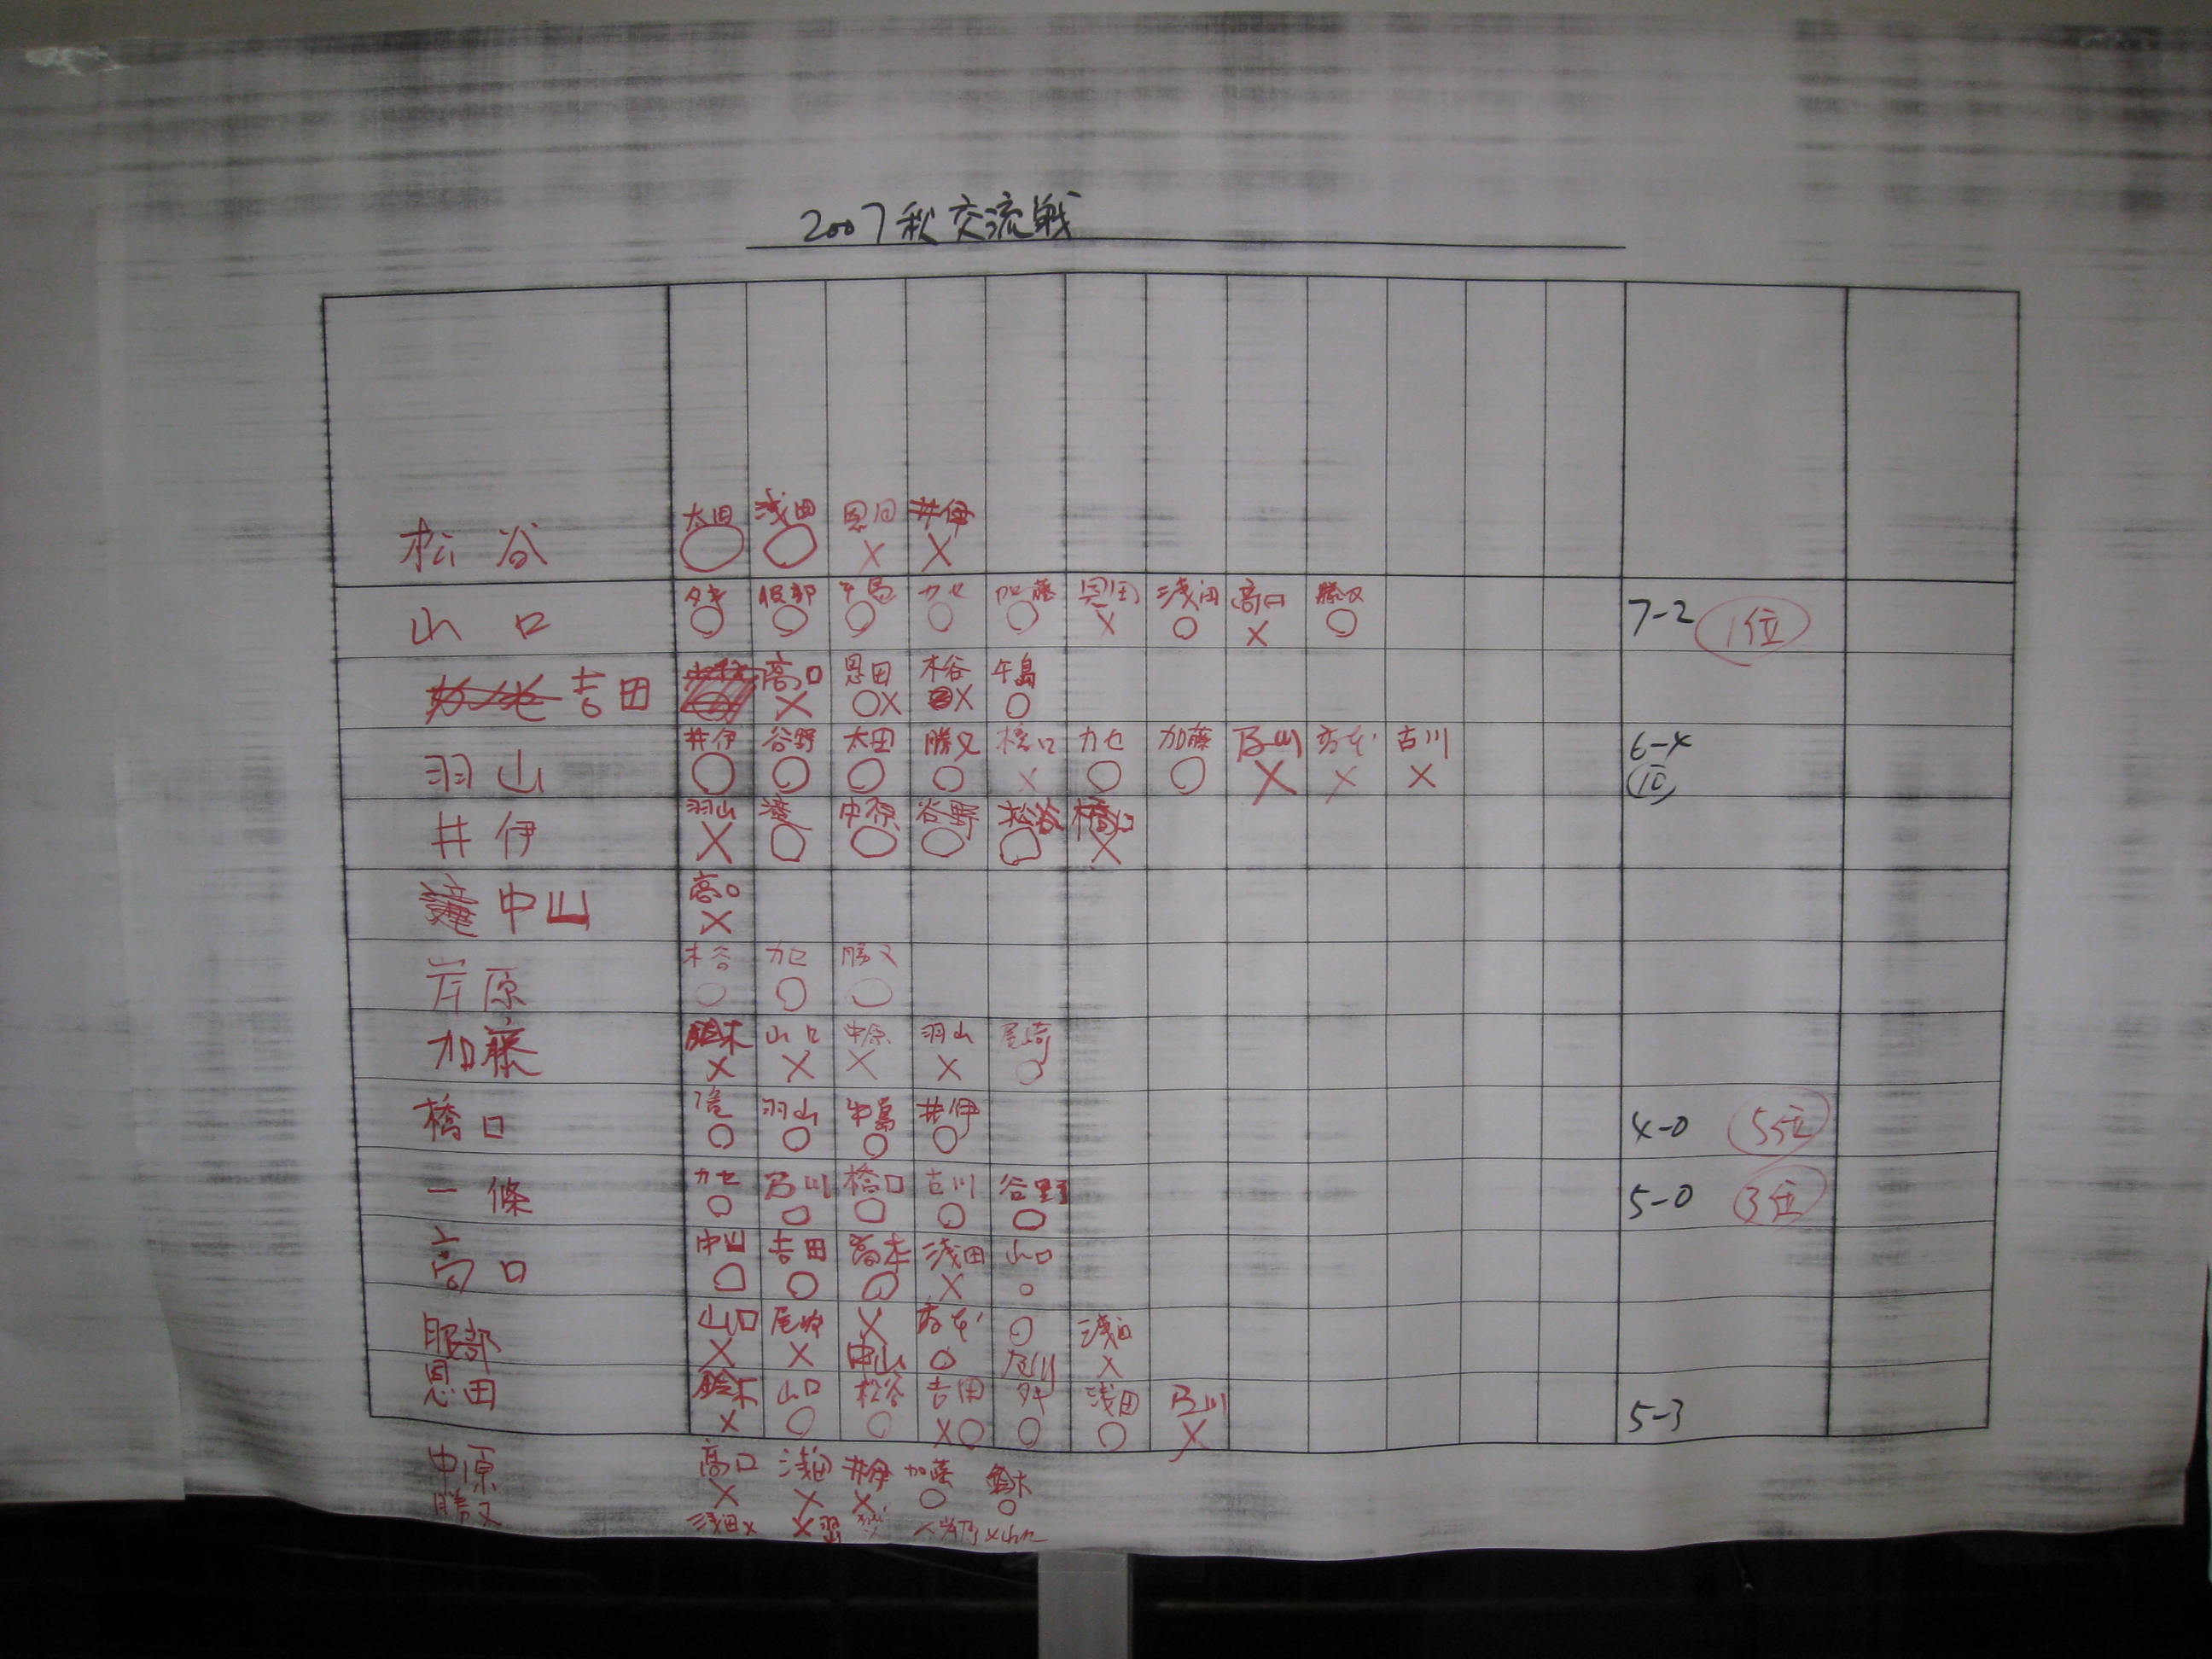 2007秋交流戦
太田 浅田 恩田 井伊
松谷 ○ ○ × ×
服部 中島 カセ 加藤 恩田 浅田 高口 勝又
山口 ○ ○ ○ ○ ○ × ○ × ○ 7-2 1位
高口 恩田 木谷 午島
吉田 × ○× × ○
井伊 谷野 太田 勝又 橋口 カセ 加藤 乃川 古川 6-4
羽山 ○ ○ ○ ○ × ○ ○ × × × 10
羽山 滝 中原 谷野 松谷 橋口
井伊 × ○ ○ ○ ○ ×
高口
中山 ×
木谷 カセ 勝又
芹原 ○ ○ ○
鈴木 山口 中原 羽山 尾崎
加藤 × × × × ○
滝 羽山 中島 井伊
橋口 ○ ○ ○ ○ 4-0 5位
カセ 乃川 橋口 古川 谷野
一條 ○ ○ ○ ○ ○ 5-0 3位
中山 吉田 高本 浅田 山口
高口 ○ ○ ○ × ○
山口 尾崎 × ○ 浅田
服部 × × 中山 ○ 乃川 ×
鈴木 山口 松谷 吉田 浅田 乃川
恩田 × ○ ○ ×○ ○ ○ × 5-3
高口 浅田 井伊 加藤 鈴木
中原 × × × ○ ○
勝又 浅田× ×羽山